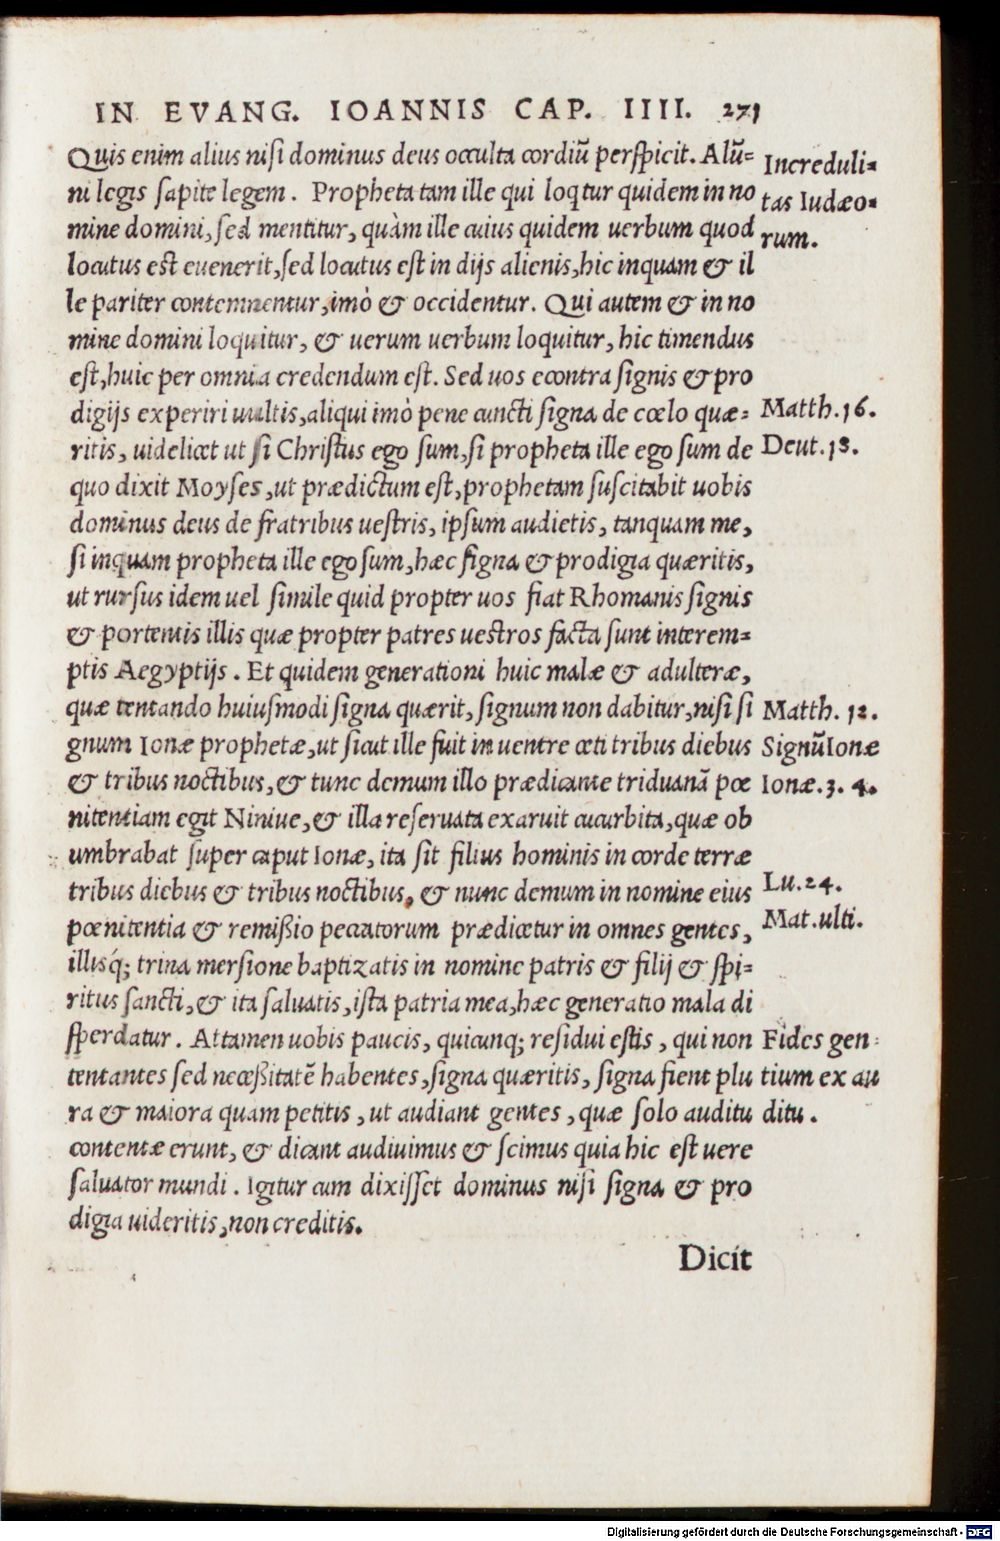 IN EVANG. IOANNIS CAP. IIII. 271
Quis enim alius nisi dominus deus occulta cordiũ perspicit. Alũ=
ni legis sapite legem. Propheta tam ille qui loqtur quidem in no
mine domini, sed mentitur, quàm ille cuius quidem uerbum quod
locutus est euenerit, sed locutus est in dijs alienis, hic inquam & il
le pariter contemnentur, imò & occidentur. Qui autem & in no
mine domini loquitur, & uerum uerbum loquitur, hic timendus
est, huic per omnia credendum est. Sed uos econtra signis & pro
digijs experiri uultis, aliqui imò pene cuncti signa de cœlo quæ=
ritis, uidelicet ut si Christus ego sum, si propheta ille ego sum de
quo dixit Moyses, ut prædictum est, prophetam suscitabit uobis
dominus deus de fratribus uestris, ipsum audietis, tanquam me,
si inquam propheta ille ego sum, hæc signa & prodigia quæritis,
ut rursus idem uel simile quid propter uos fiat Rhomanis signis
& portentis illis quæ propter patres uestros facta sunt interem=
ptis Aegyptijs. Et quidem generationi huic malæ & adulteræ,
quæ tentando huiusmodi signa quærit, signum non dabitur, nisi si
gnum Ionæ prophetæ, ut sicut ille fuit in uentre ceti tribus diebus
& tribus noctibus, & tunc demum illo prædicante triduanã pœ
nitentiam egit Niniue, & illa reseruata exaruit cucurbita, quæ ob
umbrabat super caput Ionæ, ita sit filius hominis in corde terræ
tribus diebus & tribus noctibus, & nunc demum in nomine eius
pœnitentia & remißio peccatorum prædicetur in omnes gentes,
illisq́; trina mersione baptizatis in nomine patris & filij & spi=
ritus sancti, & ita saluatis, ista patria mea, hæc generatio mala di
sperdatur. Attamen uobis paucis, quicunq; residui estis, qui non
tentantes sed neceßitatẽ habentes, signa quæritis, signa fient plu
ra & maiora quam petitis, ut audiant gentes, quæ solo auditu
contentæ erunt, & dicant audiuimus & scimus quia hic est uere
saluator mundi. Igitur cum dixisset dominus nisi signa & pro
digia uideritis, non creditis.
Dicit
Increduli=
tas Iudæo=
rum.
Matth.16.
Deut.18.
Matth. 12.
Signũ Ionæ
Ionæ.3. 4.
Lu.24.
Mat.ulti.
Fides gen=
tium ex au
ditu.
Digitalisierung gefördert durch die Deutsche Forschungsgemeinschaft - DFG